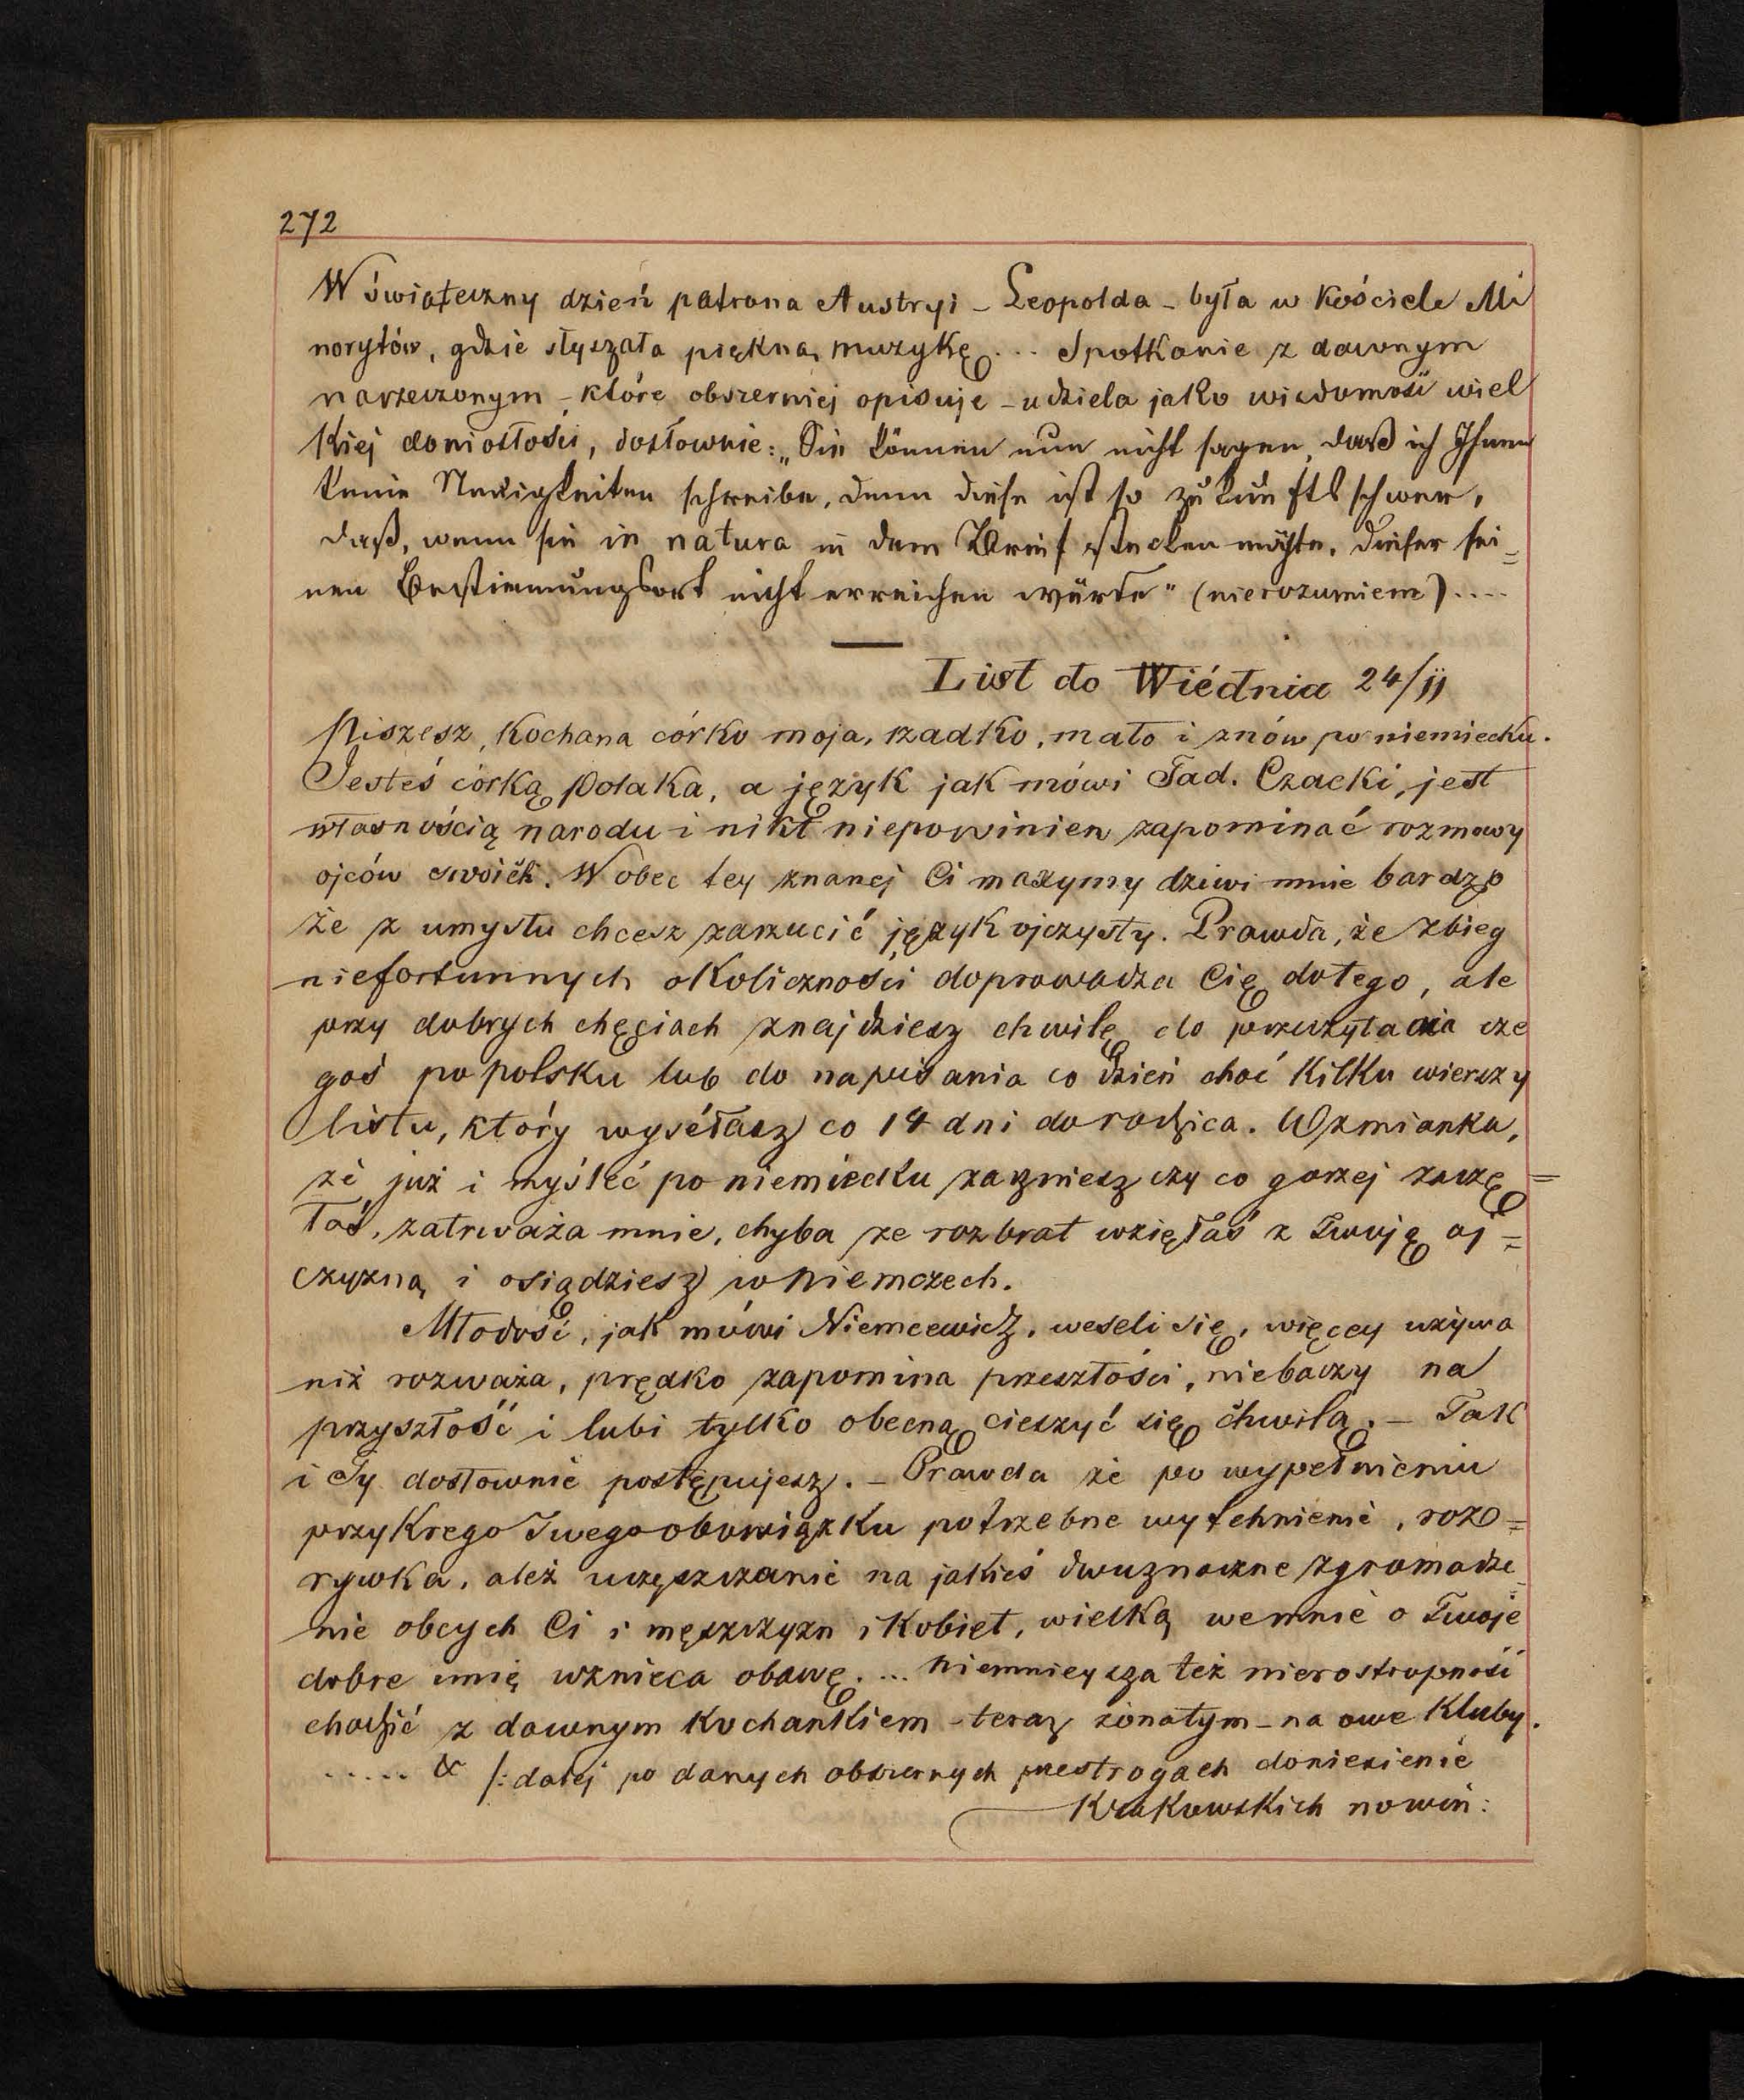 272
W świąteczny dzień patrona Austryi – Leopolda – była w kościele Mi
norytów, gdzie słyszała piękną muzykę ... Spotkanie z dawnym
narzeczonym – które obszerniej opisuje – udziela jako wiadomość wiel
kiej doniosłości, dosłownie: „Sie können nun nicht sagen, daß ich Ihnen
keine Neuigkeiten schreibe, denn diese ist so zukunftsschwer,
daß, wenn sie in natura in dem Brief stecken möchte, dieser sei=
nen Bestimmungsort nicht erreichen würde" (nierozumiem) ....
List do Wiédnia 24/11
Piszesz, kochana córko moja, rzadko, mało i znów po niemiecku.
Jesteś córką Polaka, a język jak mówi Tad. Czacki, jest
własnością narodu i nikt niepowinien zapominać rozmowy
ojców swoich. Wobec tey znanej Ci maxymy dziwi mnie bardzo
że z umysłu chcesz zarzucić język ojczysty. Prawda, że zbieg
niefortunnych okoliczności doprowadza Cię dotego, ale
przy dobrych chęciach znajdziesz chwilę do przeczytania cze
goś po polsku lub do napisania co dzień choć kilku wierszy
listu, który wyséłasz co 14 dni do rodzica. Wzmianka,
że już i myśleć po niemiecku zaczniesz czy co gorzej zaczę=
łaś, zatrważa mnie, chyba że rozbrat wzięłaś z Twoję oj=
czyzną i osiądziesz w Niemczech.
Młodość, jak mówi Niemcewicz, weseli się, więcey używa
niż rozważa, prędko zapomina przeszłości, niebaczy na
przyszłość i lubi tylko obecną cieszyć się chwilą. – Tak
i Ty dosłownie postępujesz. – Prawda że po wypełnieniu
przykrego Twego obowiązku potrzebne wytchnienie, roz=
rywka, ależ uczęszczanie na jakieś dwuznaczne zgromadze=
nie obcych Ci i męszczyzn i kobiet, wielką wemnie o Twoje
dobre imię wznieca obawę. ... Niemniejsza też nierostropność
chodzić z dawnym kochankiem – teraz żonatym – na owe kluby.
..... & /: dalej po danych obszernych przestrogach doniesienie
Krakowskich nowin: